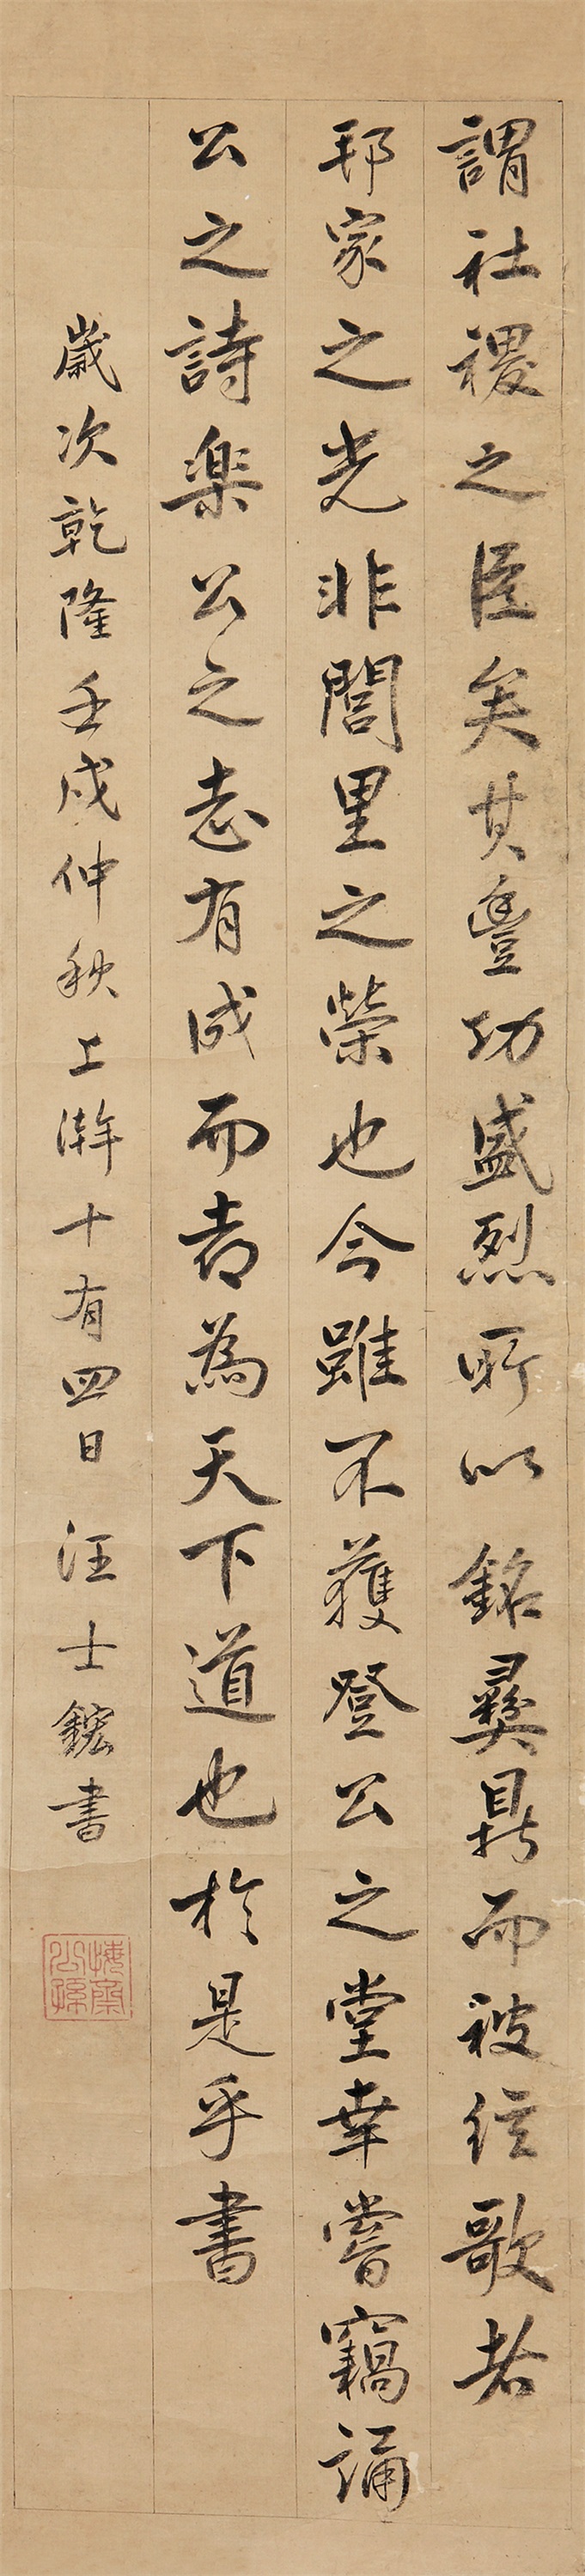 謂社稷之臣矣其豐功盛烈所以銘彝鼎而被絃歌者
邦家之光非閭里之榮也今雖不獲登公之堂幸嘗竊誦
公之詩樂公之志有成而喜為天下道也於是乎書
歲次乾隆壬戌仲秋上澣十有四日 汪士鋐書